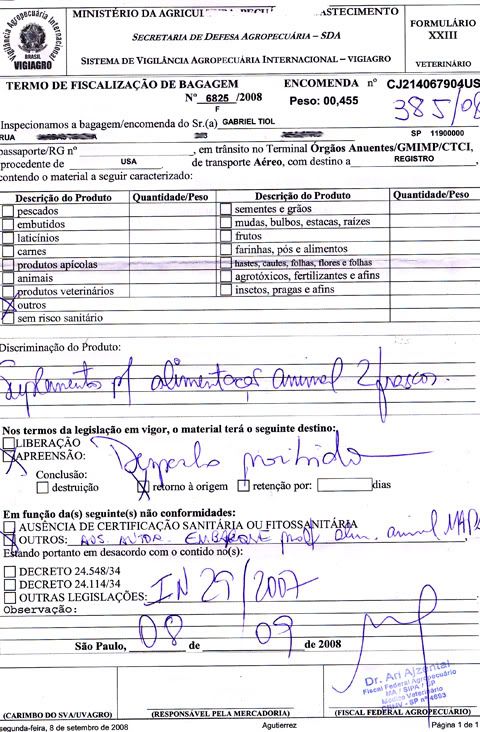 MINISTÉRIO DA AGRICUL PECU ASTECIMENTO
SECRETARIA DE DEFESA AGROPECUÁRIA – SDA
SISTEMA DE VIGILÂNCIA AGROPECUÁRIA INTERNACIONAL – VIGIAGRO
Vigilância Agropecuária Internacional
BRASIL
VIGIAGRO
FORMULÁRIO
XXIII
VETERINÁRIO
TERMO DE FISCALIZAÇÃO DE BAGAGEM
ENCOMENDA nº CJ214067904US
Nº 6825 /2008
F
Peso: 00,455
385/08
Inspecionamos a bagagem/encomenda do Sr.(a) GABRIEL TIOL
RUA SP 11900000
passaporte/RG nº , em trânsito no Terminal Órgãos Anuentes/GMIMP/CTCI,
procedente de USA de transporte Aéreo, com destino a REGISTRO ,
contendo o material a seguir caracterizado:
Descrição do Produto Quantidade/Peso Descrição do Produto Quantidade/Peso
pescados sementes e grãos
embutidos mudas, bulbos, estacas, raízes
laticínios frutos
carnes farinhas, pós e alimentos
produtos apícolas hastes, caules, folhas, flores e folhas
animais agrotóxicos, fertilizantes e afins
produtos veterinários insetos, pragas e afins
outros
sem risco sanitário
Discriminação do Produto:
Suplementos p/ alimentação animal 2 frascos.
Nos termos da legislação em vigor, o material terá o seguinte destino:
LIBERAÇÃO
APREENSÃO: proibido
Conclusão:
destruição retorno à origem retenção por: dias
Em função da(s) seguinte(s) não conformidades:
AUSÊNCIA DE CERTIFICAÇÃO SANITÁRIA OU FITOSSANITÁRIA
OUTROS: AUS. AUTOR. EMBARQUE prod alim. animal MAPA
Estando portanto em desacordo com o contido no(s):
DECRETO 24.548/34
DECRETO 24.114/34
OUTRAS LEGISLAÇÕES: IN 29/2007
Observação:
São Paulo, 08 de 09 de 2008
Dr. Ari Ajzental
Fiscal Federal Agropecuário
MA / SIPA / SP
Médico Veterinário
CRMV - SP nº 4653
(CARIMBO DO SVA/UVAGRO) (RESPONSÁVEL PELA MERCADORIA) (FISCAL FEDERAL AGROPECUÁRIO)
segunda-feira, 8 de setembro de 2008 Agutierrez Página 1 de 1